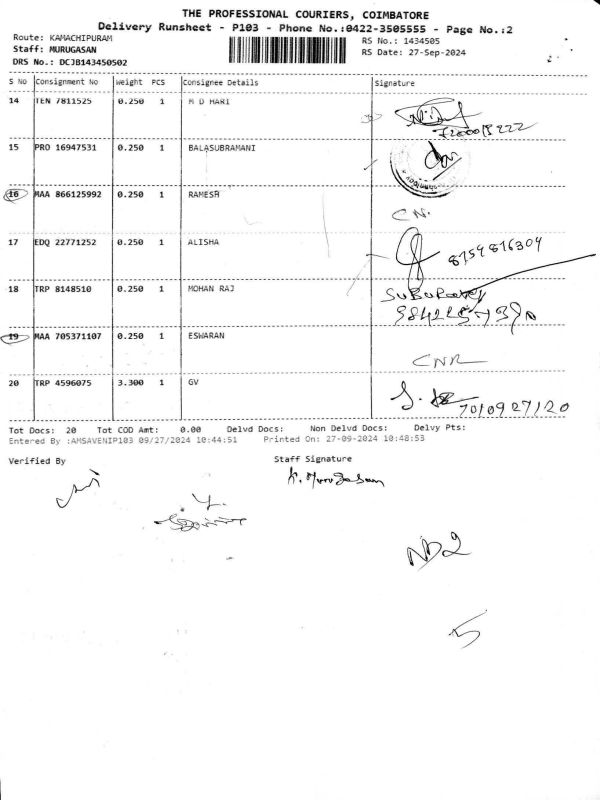 THE PROFESSIONAL COURIERS, COIMBATORE
Delivery Runsheet - P103 - Phone No.:0422-3505555 - Page No.:2
Route: KAMACHIPURAM
RS No.: 1434505
Staff: MURUGASAN
RS Date: 27-Sep-2024
DRS No.: DCJB143450502
S No Consignment No Weight PCS Consignee Details Signature
14 TEN 7811525 0.250 1 M D HARI
15 PRO 16947531 0.250 1 BALASUBRAMANI
16 MAA 866125992 0.250 1 RAMESH
CN.
17 EDQ 22771252 0.250 1 ALISHA
8754876304
18 TRP 8148510 0.250 1 MOHAN RAJ
19 MAA 705371107 0.250 1 ESWARAN
CNR
20 TRP 4596075 3.300 1 GV
7010927120
Tot Docs: 20 Tot COD Amt: 0.00 Delvd Docs: Non Delvd Docs: Delvy Pts:
Entered By :AMSAVENIP103 09/27/2024 10:44:51 Printed On: 27-09-2024 10:48:53
Verified By
Staff Signature
K. Murugasan
ND2
5